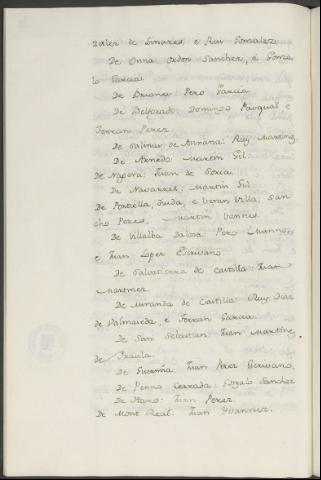 de Linares, e Rui Gonzalez
De Onna Ordon Sanchez, e Gonza
lo Garcia
De Briones: Pero Garcia
De Belforado: Domingo Pasqual e
Ferran Perez.
De Salinas de Annana: Ruy Martinz
De Arnedo: Martin Gil.
De Nagera: Juan de Soria
De Navarret: Martin Gil
De Portiella, Buda, e Veran Villa; San
cho Peres, Martin Yannes
De Villalba Dalosa Pero Munnoz,
e Juan Lopez Escrivano.
De Salvatierra de Castilla: Juan
Martinez
De Miranda de Castilla: Ruy Dias
de Valmaseda, e Ferran Garcia
De San Sebastian: Juan Martinz
de
De Juan Perez Escrivano,
De Penna Cerrada: Gozalo Sanchez
De Haro: Juan Perez
De Mont Real: Juan Yvannez.